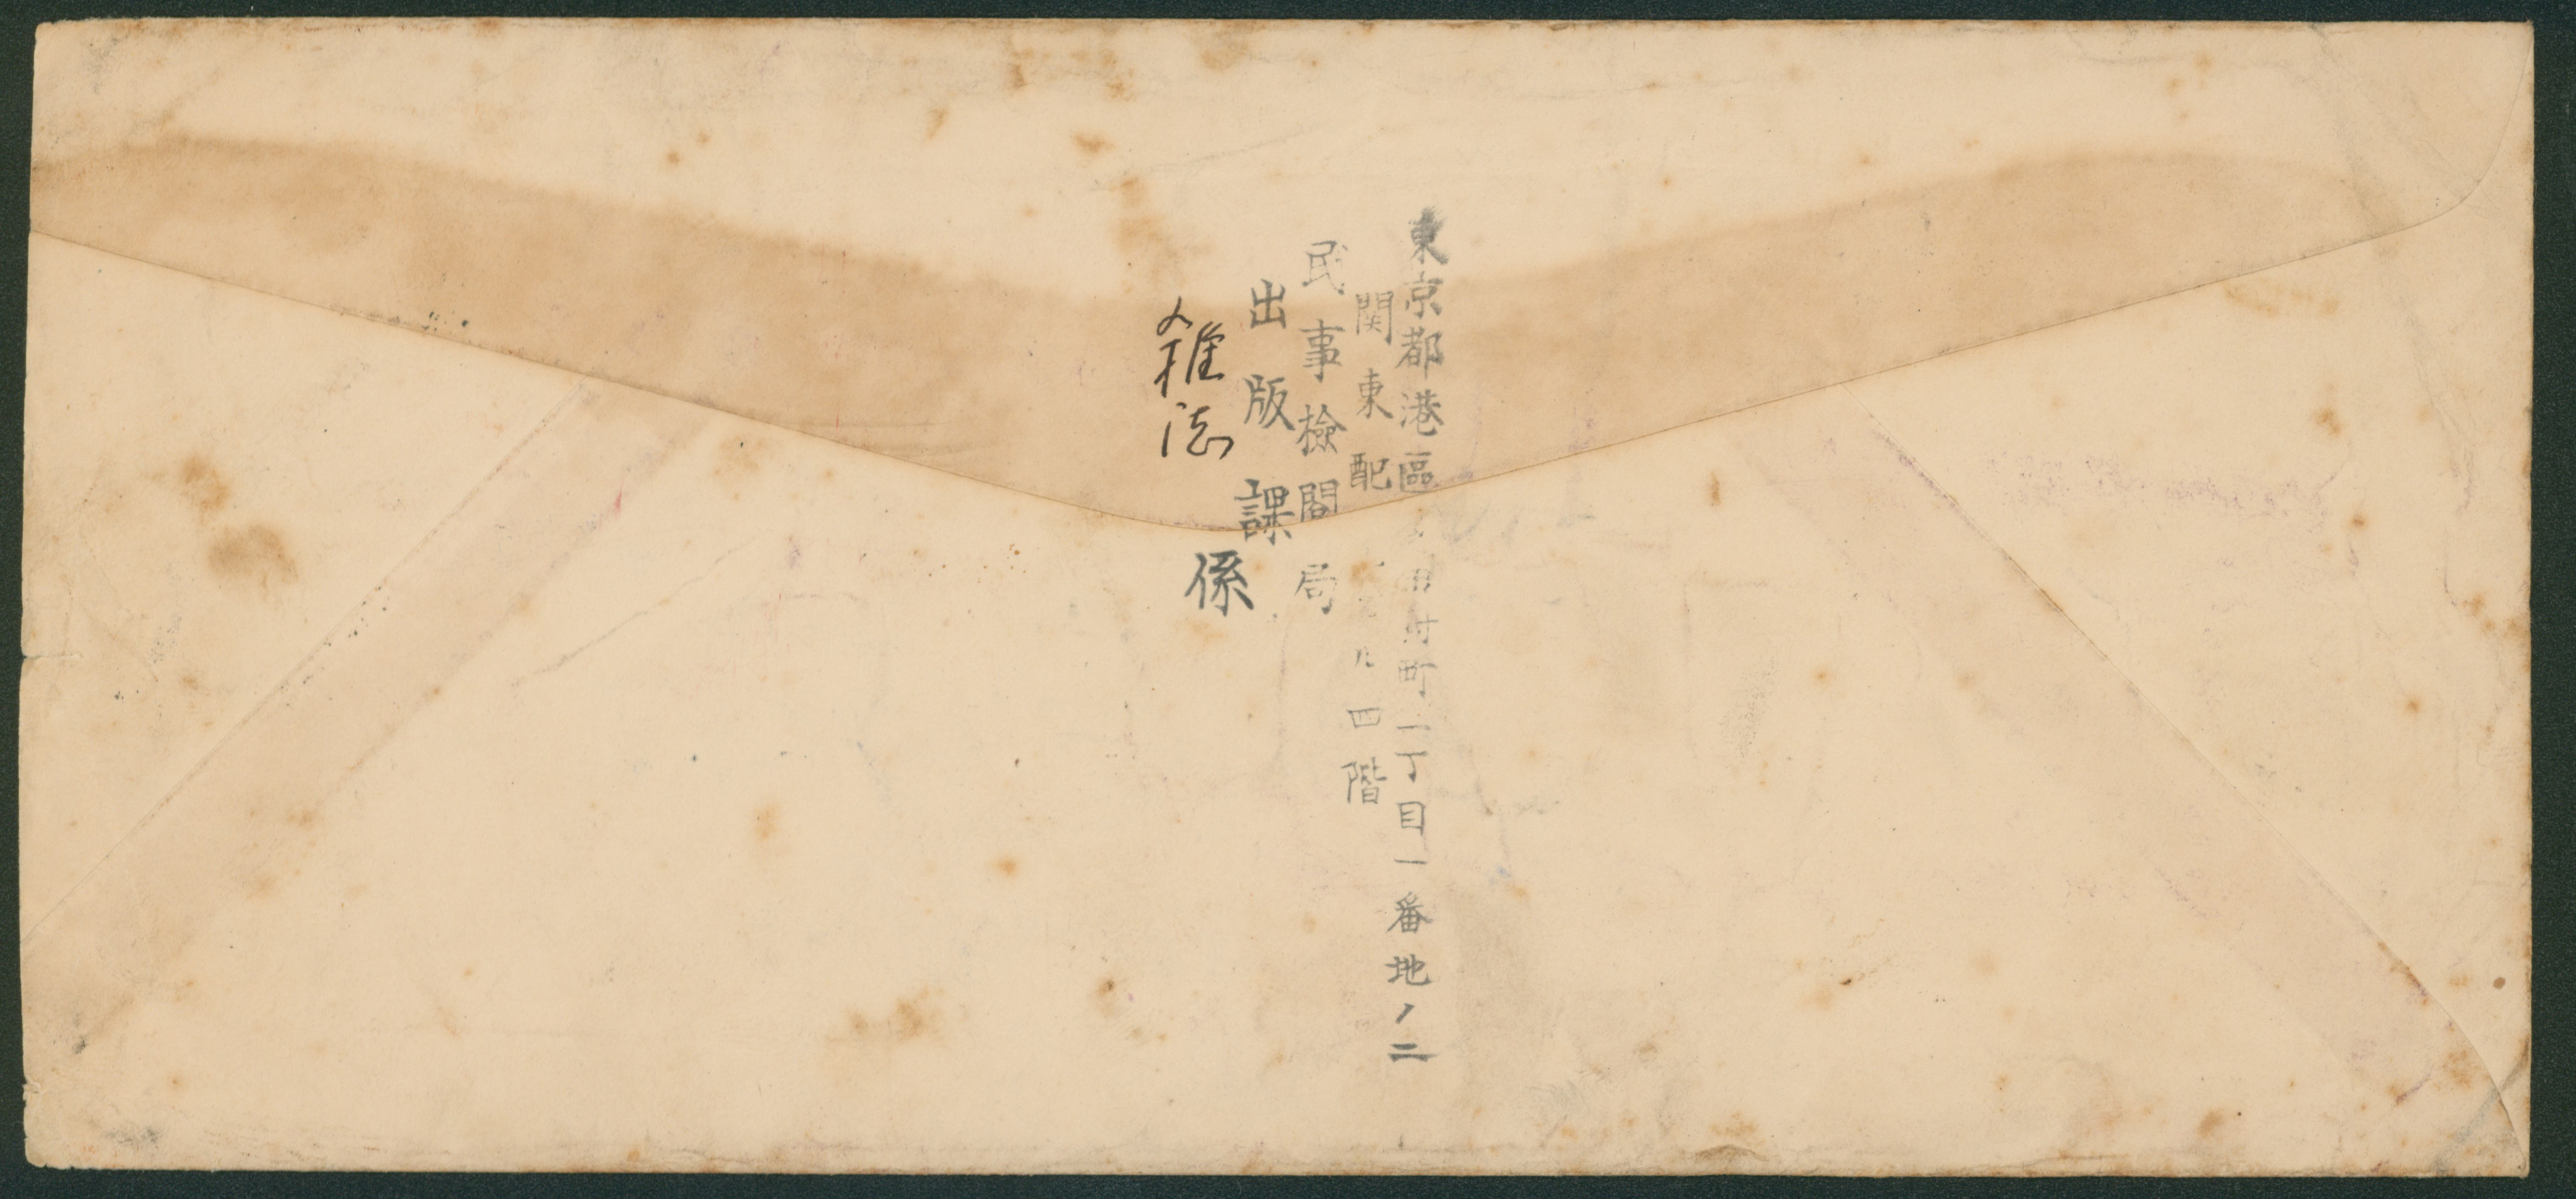 東京都港區田村町一丁目一番地ノ二
関東配 四階
民事檢閲局
出版課
雑誌係